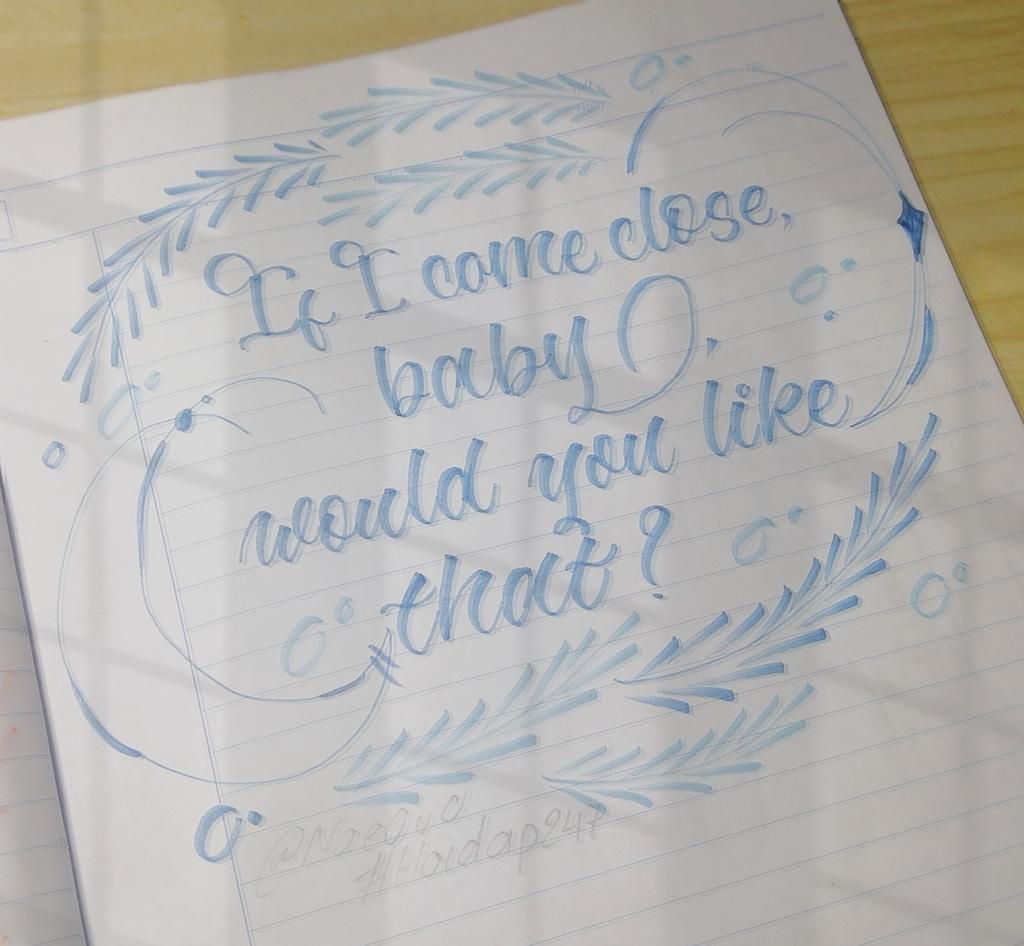 If I come close,
baby,
would you like
that?
#Hoidap247